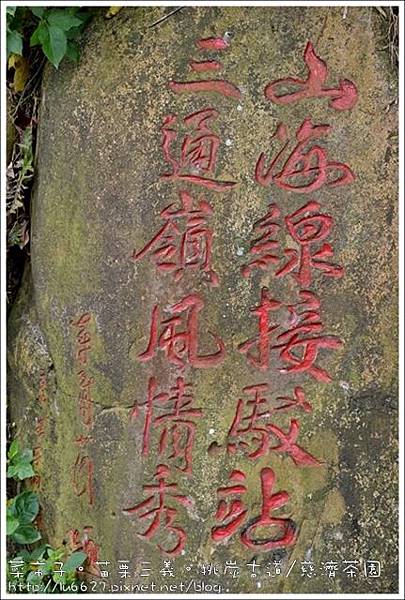 山海線接駁站
三通嶺風情秀
菜市子。苗栗三義。挑炭古道/慈濟茶園
http://lu6627.pixnet.net/blog